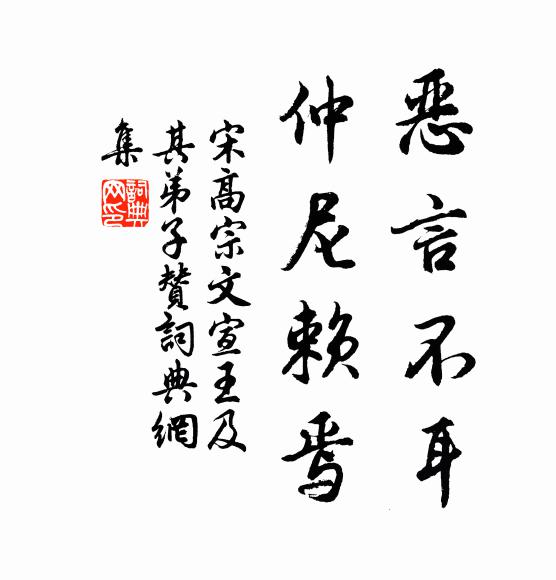 恶言不耳
仲尼赖焉
宋高宗文宣王及
其弟子赞詞典網
集
詞典网印